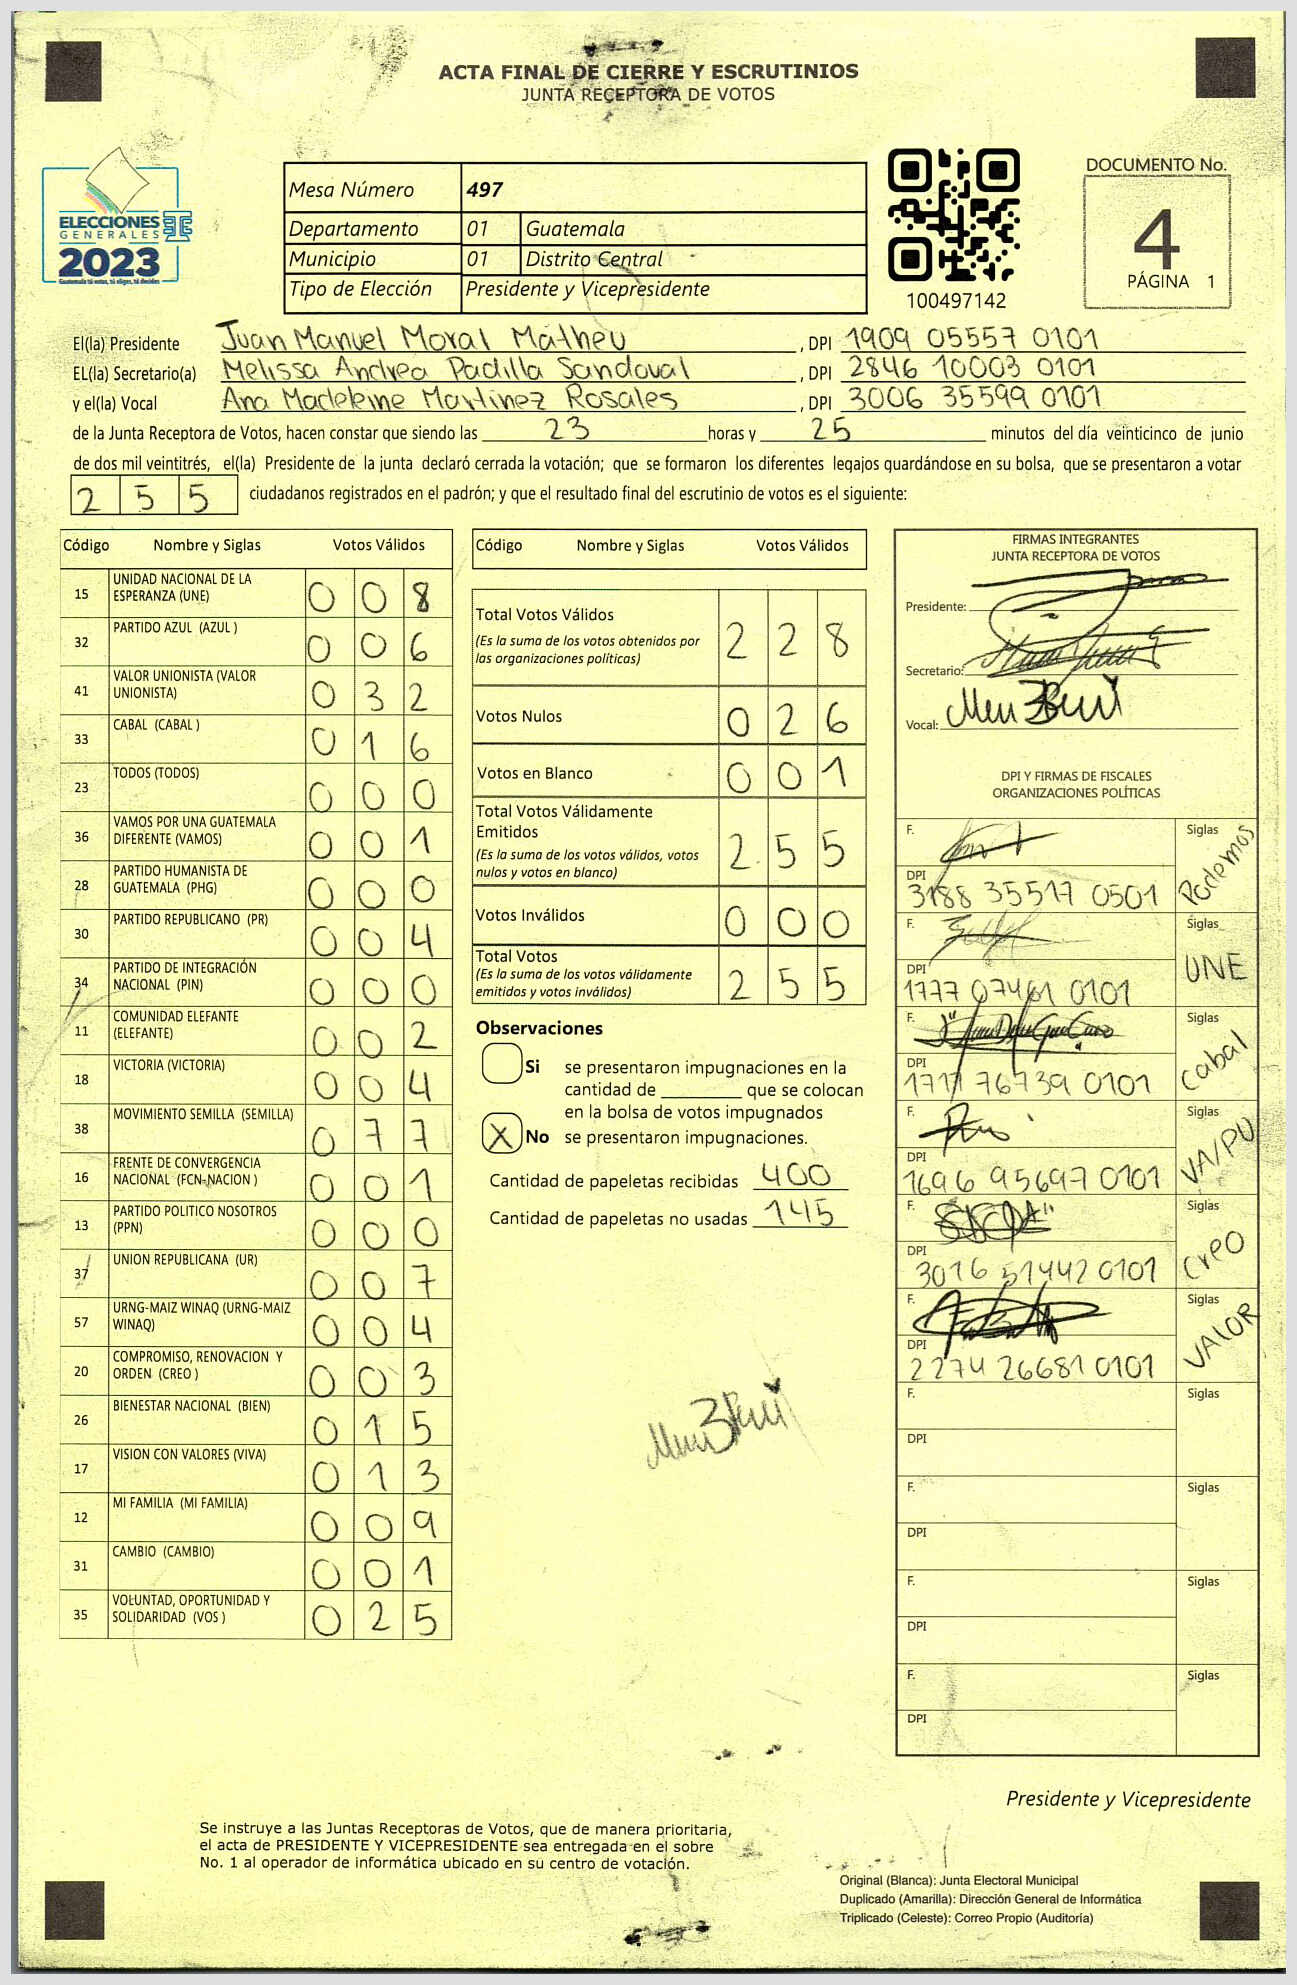 ACTA FINAL DE CIERRE Y ESCRUTINIOS
JUNTA RECEPTORA DE VOTOS
ELECCIONES
GENERALES
2023
Guatemala tú votas, tú eliges, tú decides
Mesa Número 497
Departamento 01 Guatemala
Municipio 01 Distrito Central
Tipo de Elección Presidente y Vicepresidente
100497142
DOCUMENTO No.
4
PÁGINA 1
El(la) Presidente Juan Manuel Moral Matheu, DPI 1909 05557 0101
EL(la) Secretario(a) Melissa Andrea Padilla Sandoval, DPI 2846 10003 0101
y el(la) Vocal Ana Madeleine Martinez Rosales, DPI 3006 35599 0101
de la Junta Receptora de Votos, hacen constar que siendo las 23 horas y 25 minutos del día veinticinco de junio
de dos mil veintitrés, el(la) Presidente de la junta declaró cerrada la votación; que se formaron los diferentes legajos guardándose en su bolsa, que se presentaron a votar
255 ciudadanos registrados en el padrón; y que el resultado final del escrutinio de votos es el siguiente:
Código Nombre y Siglas Votos Válidos
15 UNIDAD NACIONAL DE LA ESPERANZA (UNE) 008
32 PARTIDO AZUL (AZUL ) 006
41 VALOR UNIONISTA (VALOR UNIONISTA) 032
33 CABAL (CABAL ) 016
23 TODOS (TODOS) 000
36 VAMOS POR UNA GUATEMALA DIFERENTE (VAMOS) 001
28 PARTIDO HUMANISTA DE GUATEMALA (PHG) 000
30 PARTIDO REPUBLICANO (PR) 004
34 PARTIDO DE INTEGRACIÓN NACIONAL (PIN) 000
11 COMUNIDAD ELEFANTE (ELEFANTE) 002
18 VICTORIA (VICTORIA) 004
38 MOVIMIENTO SEMILLA (SEMILLA) 077
16 FRENTE DE CONVERGENCIA NACIONAL (FCN-NACION ) 001
13 PARTIDO POLITICO NOSOTROS (PPN) 000
37 UNION REPUBLICANA (UR) 007
57 URNG-MAIZ WINAQ (URNG-MAIZ WINAQ) 004
20 COMPROMISO, RENOVACION Y ORDEN (CREO ) 003
26 BIENESTAR NACIONAL (BIEN) 015
17 VISION CON VALORES (VIVA) 013
12 MI FAMILIA (MI FAMILIA) 009
31 CAMBIO (CAMBIO) 001
35 VOLUNTAD, OPORTUNIDAD Y SOLIDARIDAD (VOS ) 025
Código Nombre y Siglas Votos Válidos
Total Votos Válidos 228
(Es la suma de los votos obtenidos por
las organizaciones políticas)
Votos Nulos 026
Votos en Blanco 001
Total Votos Válidamente
Emitidos 255
(Es la suma de los votos válidos, votos
nulos y votos en blanco)
Votos Inválidos 000
Total Votos 255
(Es la suma de los votos válidamente
emitidos y votos inválidos)
Observaciones
Si se presentaron impugnaciones en la
cantidad de ________ que se colocan
en la bolsa de votos impugnados
X No se presentaron impugnaciones.
Cantidad de papeletas recibidas 400
Cantidad de papeletas no usadas 145
FIRMAS INTEGRANTES
JUNTA RECEPTORA DE VOTOS
Presidente:
Secretario:
Vocal:
DPI Y FIRMAS DE FISCALES
ORGANIZACIONES POLÍTICAS
F. Siglas Podemos
DPI 3188 35517 0501
F. Siglas UNE
DPI 1777 07461 0101
F. Siglas Cabal
DPI 1717 76739 0101
F. Siglas VA/PU
DPI 1696 95697 0101
F. Siglas Creo
DPI 3016 51442 0101
F. Siglas VALOR
DPI 2274 26681 0101
F. Siglas
DPI
F. Siglas
DPI
F. Siglas
DPI
F. Siglas
DPI
Presidente y Vicepresidente
Se instruye a las Juntas Receptoras de Votos, que de manera prioritaria,
el acta de PRESIDENTE Y VICEPRESIDENTE sea entregada en el sobre
No. 1 al operador de informática ubicado en su centro de votación.
Original (Blanca): Junta Electoral Municipal
Duplicado (Amarilla): Dirección General de Informática
Triplicado (Celeste): Correo Propio (Auditoría)